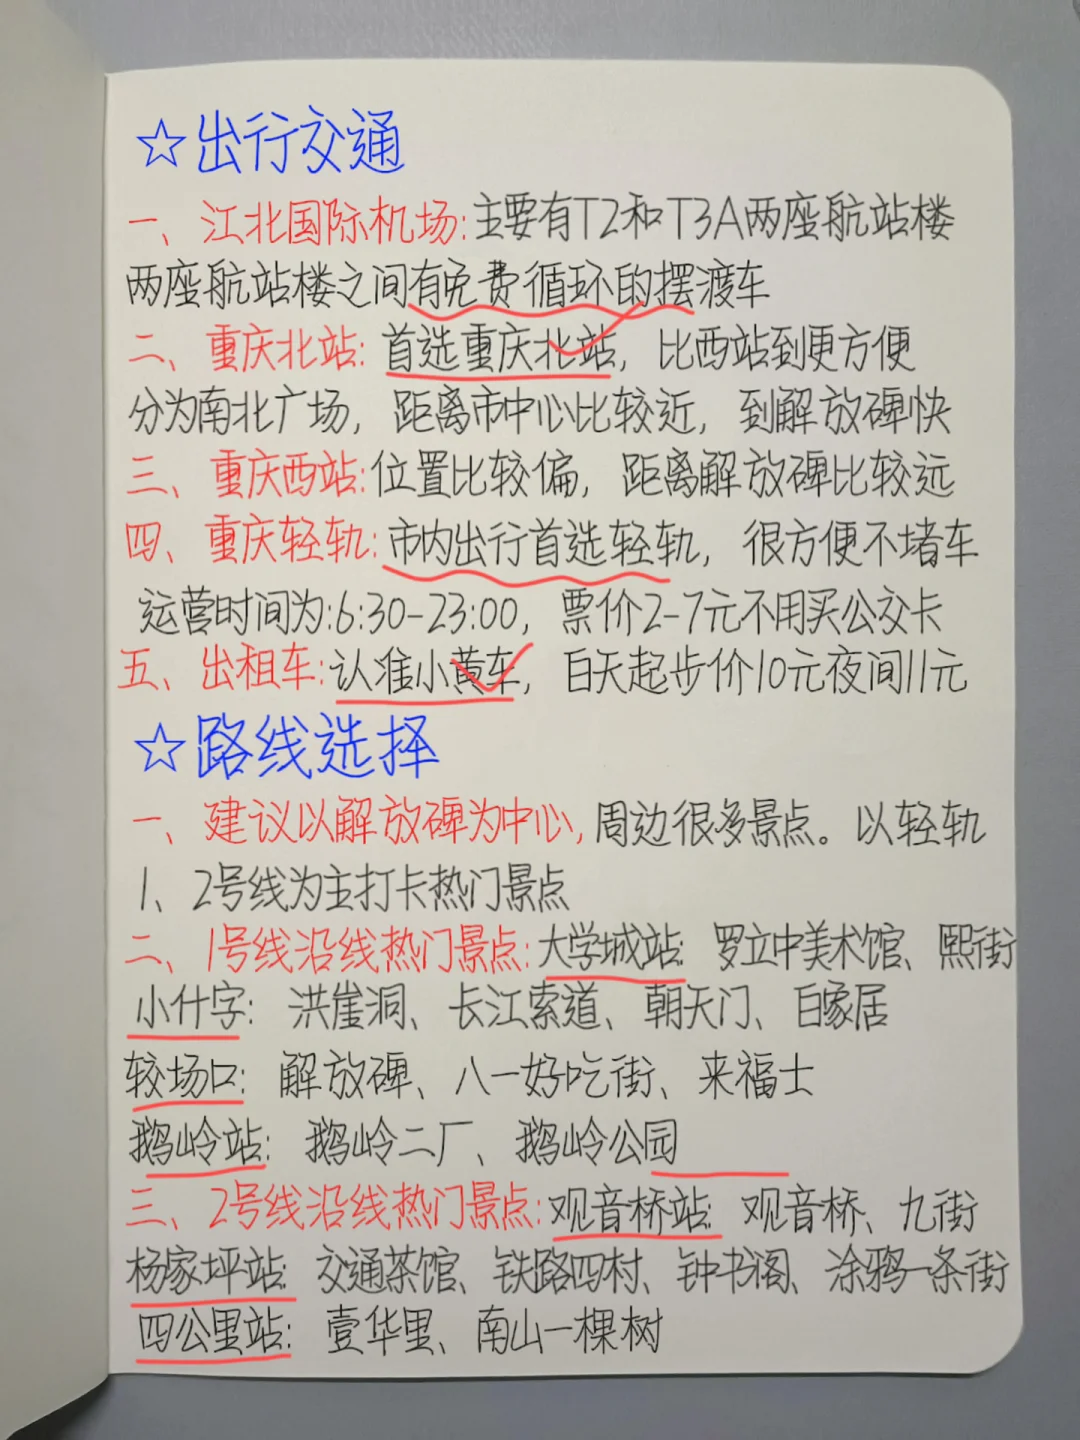 ☆出行交通
一、江北国际机场:主要有T2和T3A两座航站楼
两座航站楼之间有免费循环的摆渡车
二、重庆北站:首选重庆北站，比西站到更方便
分为南北广场，距离市中心比较近，到解放碑快
三、重庆西站:位置比较偏，距离解放碑比较远
四、重庆轻轨:市内出行首选轻轨，很方便不堵车
运营时间为:6:30-23:00，票价2-7元不用买公交卡
五、出租车:认准小黄车，白天起步价10元夜间11元
☆路线选择
一、建议以解放碑为中心,周边很多景点。以轻轨
1、2号线为主打卡热门景点
二、1号线沿线热门景点:大学城站:罗立中美术馆、熙街
小什字:洪崖洞、长江索道、朝天门、白象居
较场口:解放碑、八一好吃街、来福士
鹅岭站:鹅岭二厂、鹅岭公园
三、2号线沿线热门景点:观音桥站:观音桥、九街
杨家坪站:交通茶馆、铁路四村、钟书阁、涂鸦一条街
四公里站:壹华里、南山一棵树